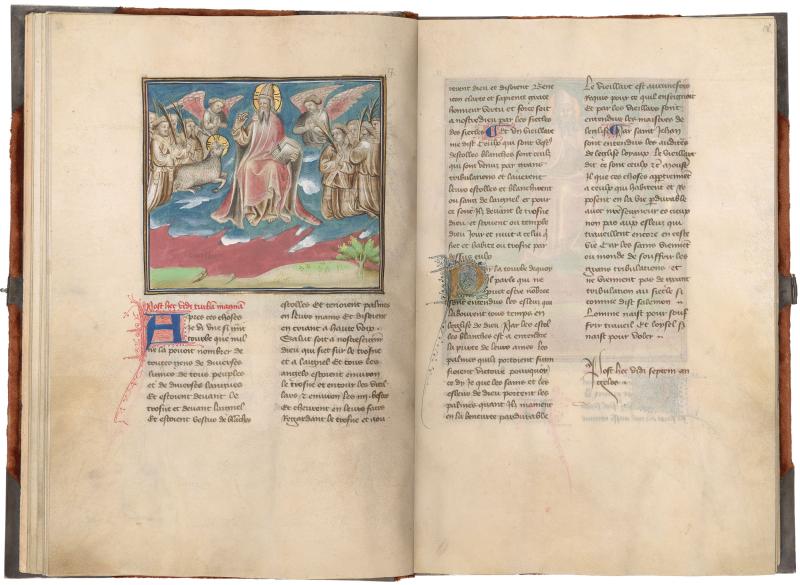 Post hec vidi turbam magnam
Apres ces choses
Je di vne si gnt
tourbe que nul
ne la pouoit nombrer de
toutes gens de diuerses
lignees de tous peuples
et de diuerses langues
Et estoient deuant le
trosne et deuant laignel
Et estoient vestus de blãches
estolles Et tenoient palmes
en leurs mains Et disoient
en criant a haute voix
Salut soit a nostre seigneur
dieu qui siet sur le trosne
et a laignel et tous les
angels estoient enuiron
le trosne et entour les viel
lars et enuiron les iiij bestes
Et cheirent en leurs faces
Regardant le trosne et aou
rerent dieu et disoient Bene
icon clarte et sapience grace
honneur vertu et force soit
a nostre dieu par les siecles
des siecles Et vn vieillart
me dist Ceulx qui sont vestus
destolles blanches sont ceulx
qui sont venus par grans
tribulations et lauerent
leurs estolles et blanchirent
ou sanc de laignel et pour
ce sont Ilz deuant le trosne
dieu et seruent ou temple
dieu Jour et nuit a celui q̃
siet et habite ou trosne par
dessus eulx
Par la tourbe de quoy
Il parle qui ne
pouoit estre nõbree
sont entendus les esleus qui
labourent tous temps en
leglise de dieu Par les estol
les blanches est a entendre
la purte de leurs ames Les
palmes quilz portoient signi
fioient victoire pourquoy
ce dit Je que les sains et les
esleus de dieu portent les
palmes quant Ilz mainent
en la beneurte pardurable
Le vieillart est aucunesfois
Requis pour ce quil enseignoit
Et par les vieillars sont
entendus les maistres de
leglise Par saint Jehan
sont entendus les audites
de leglise loyaulx Le vieillart
dit ce sont ceulx et moustre
Il que ces choses appartiennent
a ceulx qui habitent et re
posent en la vie pardurable
auec nostre seigneur es cieulx
non pas aux esleus qui
traueillent encore en ceste
vie Car les sains viennent
ou monde de souffrir les
grans tribulations et
ne viennent pas de grant
tribulation au siecle si
comme dist salemon
Lomme naist pour souf
frir trauail et loysel si
naist pour voler
Post hec vidi septem an
gelos